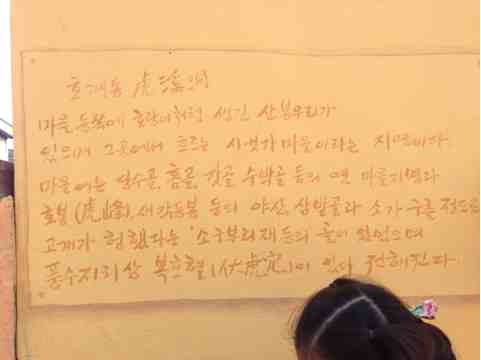 호계동 虎溪洞
마을 동쪽에 호랑이처럼 생긴 산봉우리가
있으며 그곳에서 흐르는 시냇가 마을이라는 지명이다.
마을에는 골, 홈골, 갓골 수박골 등의 옛 마을지명과
호봉(虎峰), 새각동봉 등의 야산, 골과 소가 구른 정도로
고개가 험했다는 '소구부리재 등의 들이 있었으며
풍수지리상 복호혈(伏虎穴)이 있다 전해진다.